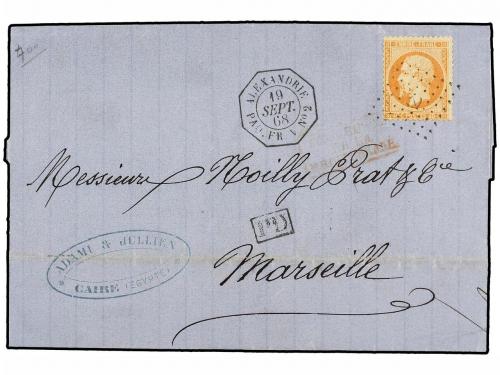 700
EMPIRE FRANC
ALEXANDRIE
19
SEPT.
68
PAQ. FR. V No 2
Messieurs Noilly Prat & Cie
PD
ADAMI & JULLIEN
CAIRE (EGYPTE)
Marseille